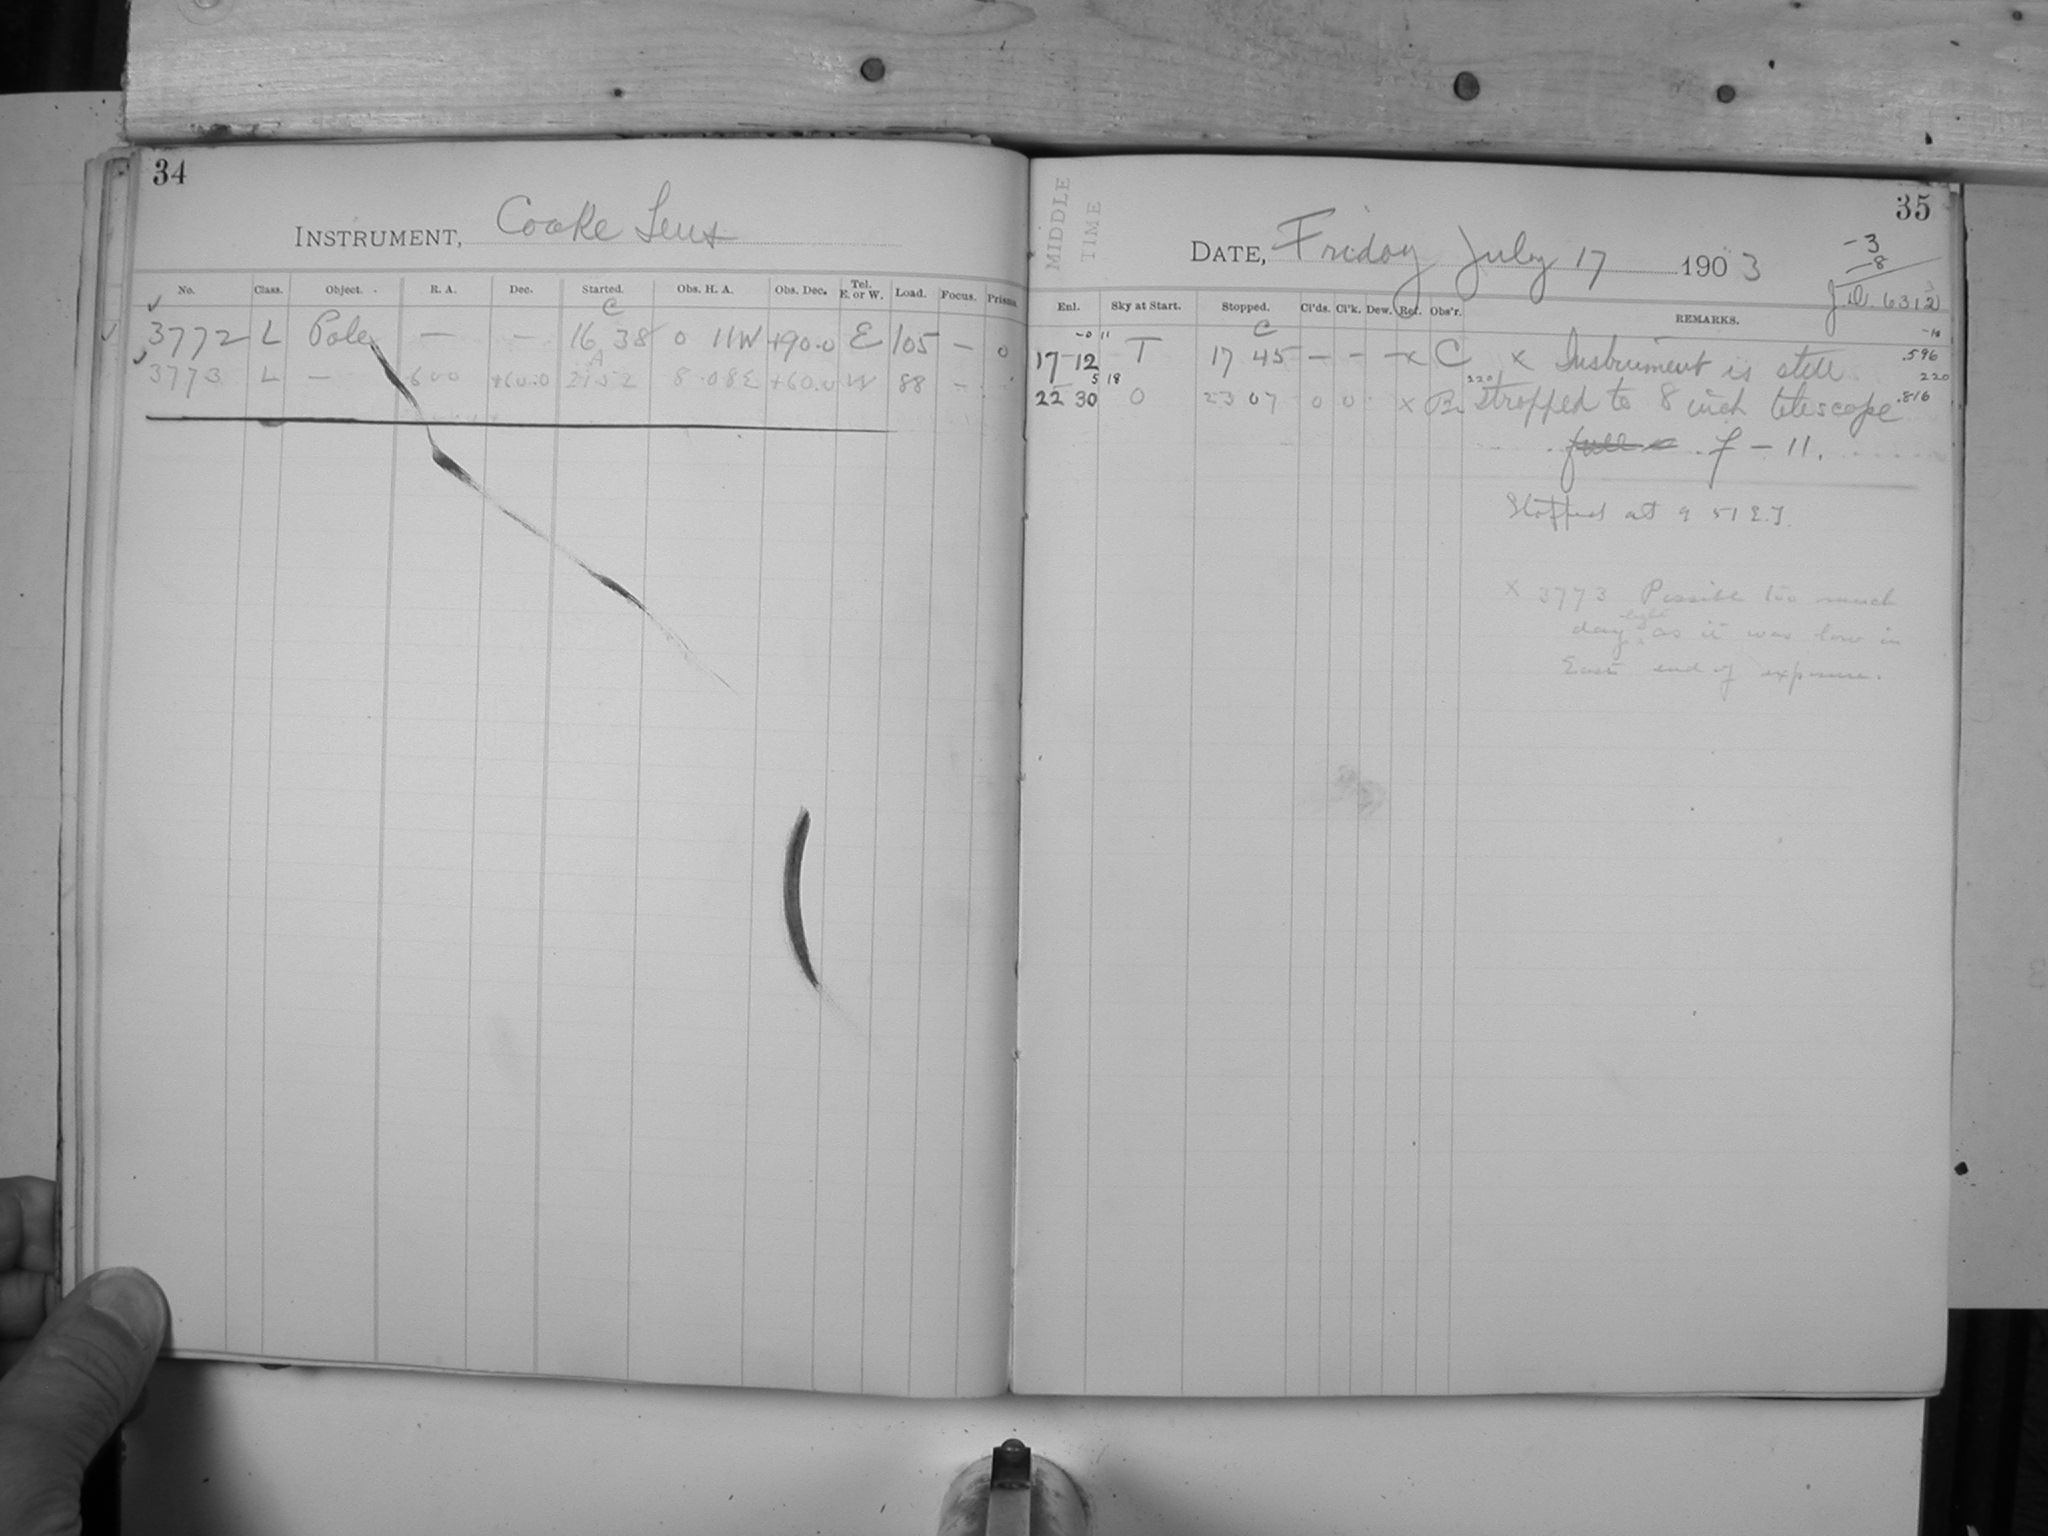 34
INSTRUMENT, Cooke Lens
No. Class. Object. R. A. Dec. Started. Obs. H. A. Obs. Dec. Tel. E. or W. Load. Focus. Prisms.
3772 L Pole — — C 16 38 0 11W +90.0 E 105 — 0
3773 L — 6 00 +60.0 A 21 52 8 08E +60.0 W 88 —
MIDDLE TIME
35
DATE, Friday July 17 1903
-3
-8
J.D. 6312
Enl. Sky at Start. Stopped. Cl'ds. Cl'k. Dew. Ref. Obs'r. REMARKS.
-0 11
17-12 T C 17 45 — — — x C x Instrument is still .596
5 18
22 30 0 23 07 0 0 x stropped to 8 inch telescope .816
220
f - 11.
Stopped at 9 51 E.T.
x 3773 Possible too much
day light as it was low in
East end of exposure.